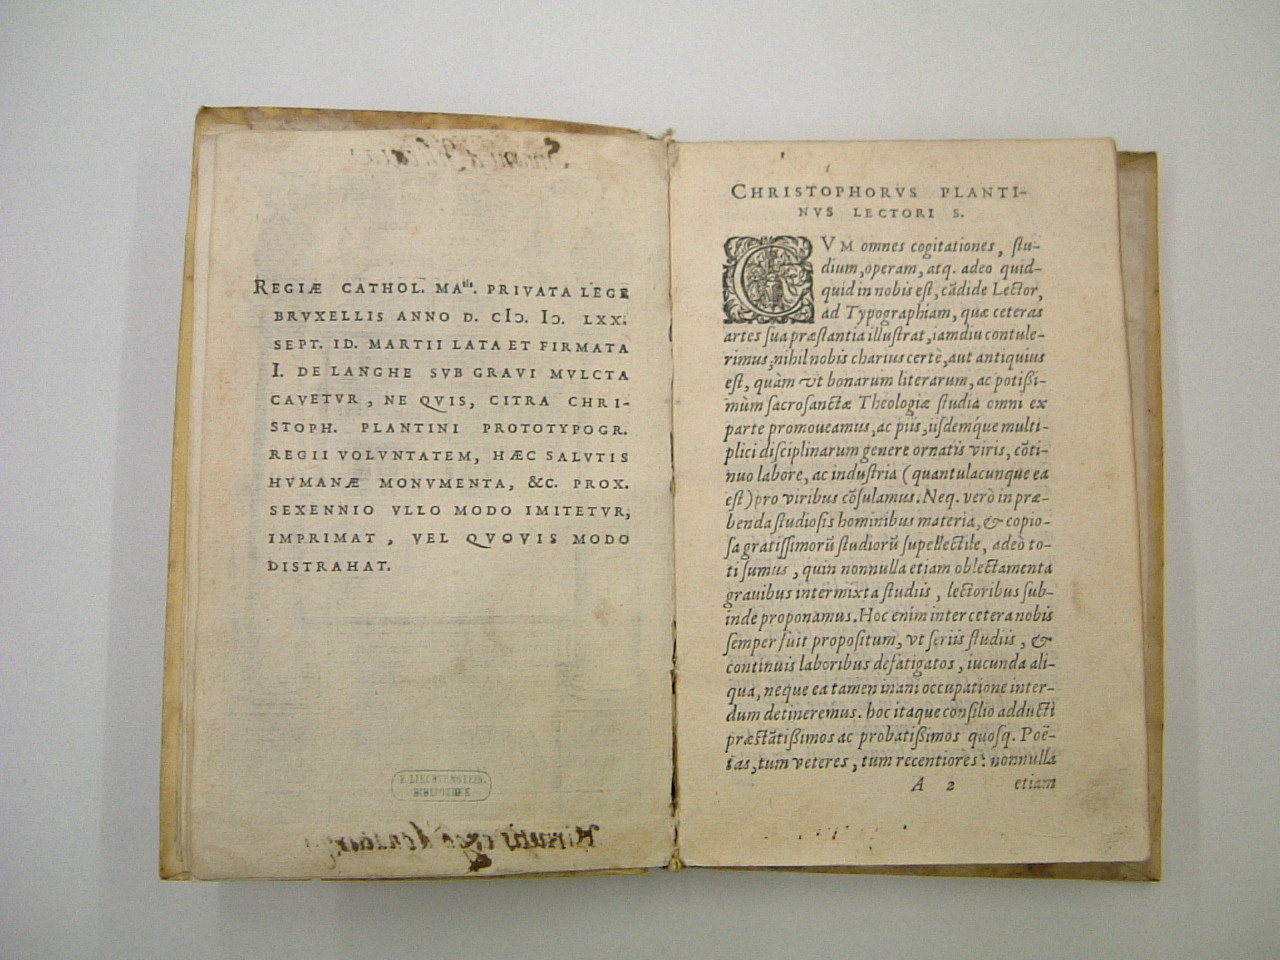 REGIÆ CATHOL. MA^tis. PRIVATA LEGE
BRVXELLIS ANNO D. CIↃ. IↃ. LXX.
SEPT. ID. MARTII LATA ET FIRMATA
I. DE LANGHE SVB GRAVI MVLCTA
CAVETVR, NE QVIS, CITRA CHRI-
STOPH. PLANTINI PROTOTYPOGR.
REGII VOLVNTATEM, HÆC SALVTIS
HVMANÆ MONVMENTA, &C. PROX.
SEXENNIO VLLO MODO IMITETVR,
IMPRIMAT, VEL QVOVIS MODO
DISTRAHAT.
F. LIECHTENSTEIN.
BIBLIOTHEK
CHRISTOPHORVS PLANTI-
NVS LECTORI S.
CVM omnes cogitationes, stu-
dium, operam, atq. adeo quid-
quid in nobis est, cãdide Lector,
ad Typographiam, quæ ceteras
artes sua præstantia illustrat, iamdiu contule-
rimus, nihil nobis charius certè, aut antiquius
est, quàm vt bonarum literarum, ac potißi-
mùm sacrosanctæ Theologiæ studia omni ex
parte promoueamus, ac piis, iisdemque multi-
plici disciplinarum genere ornatis viris, cõti-
nuo labore, ac industria (quantulacunque ea
est) pro viribus cõsulamus. Neq. verò in præ-
benda studiosis hominibus materia, & copio-
sa gratissimorũ studiorũ supellectile, adeò to-
ti sumus, quin nonnulla etiam oblectamenta
grauibus intermixta studiis, lectoribus sub-
inde proponamus. Hoc enim inter cetera nobis
semper fuit propositum, vt seriis studiis, &
continuis laboribus defatigatos, iucunda ali-
qua, neque ea tamen inani occupatione inter-
dum detineremus. hoc itaque consilio adducti
præstãtißimos ac probatißimos quosq. Poë-
tas, tum veteres, tum recentiores: nonnulla
A 2 etiam